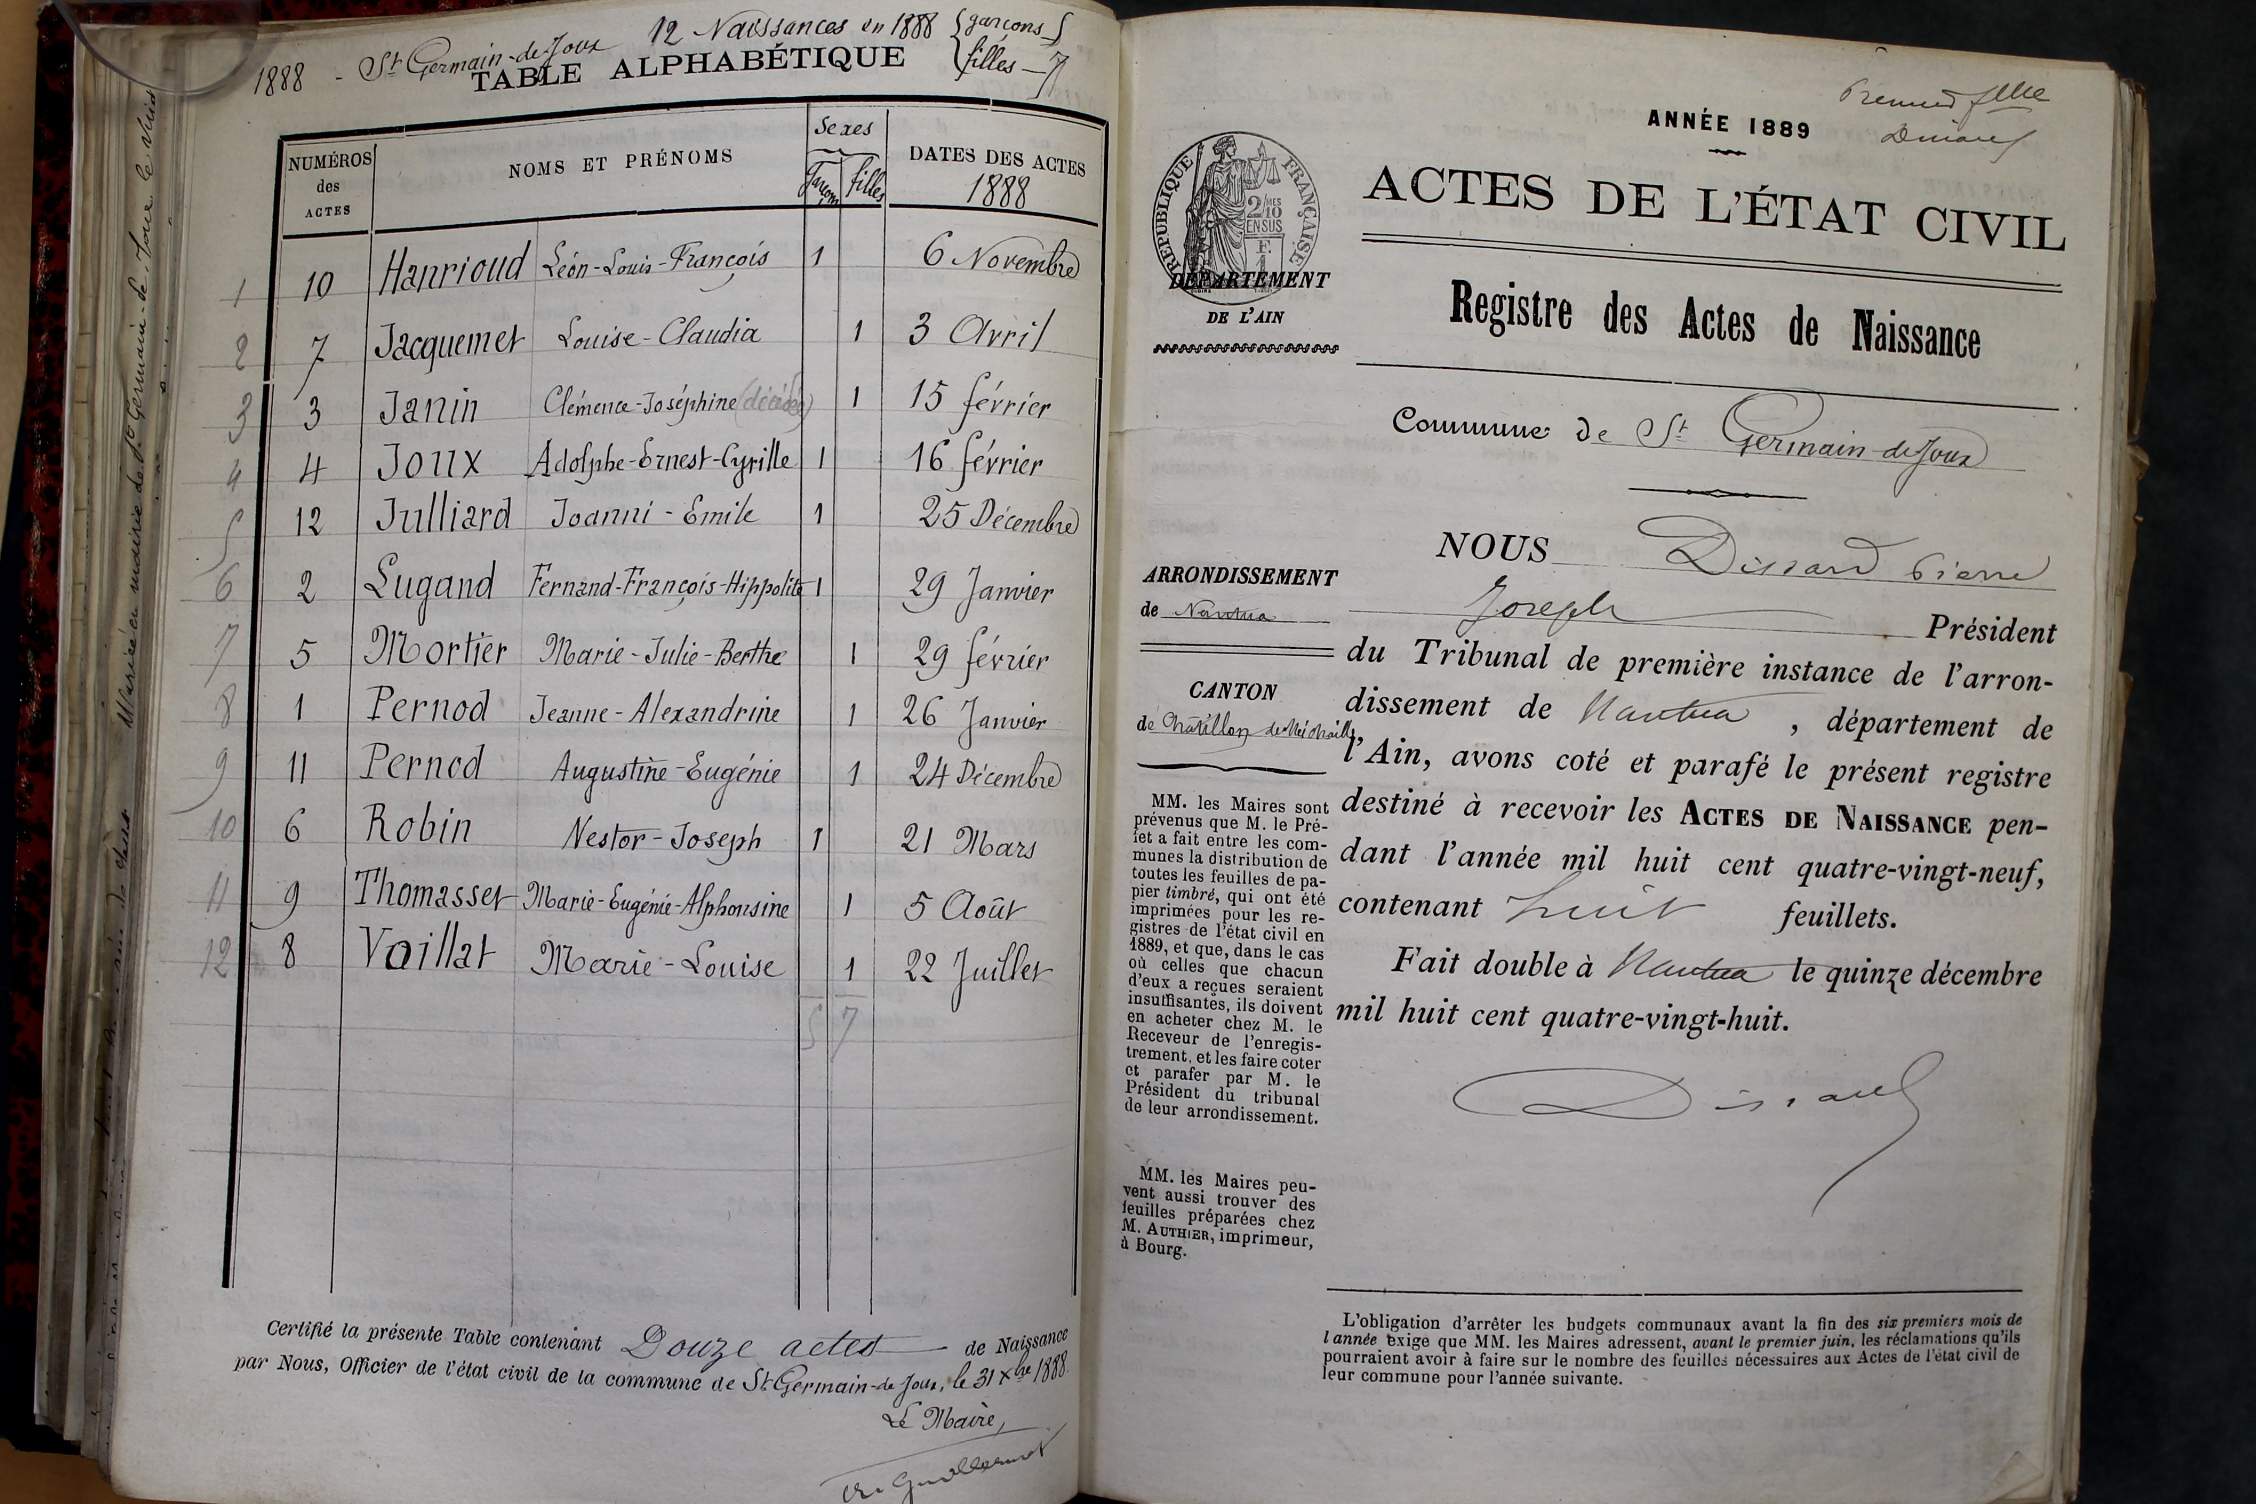 12 Naissances en 1888 { garçons 5
filles — 7
1888 - St Germain-de-Joux
TABLE ALPHABÉTIQUE
NUMÉROS des ACTES | NOMS ET PRÉNOMS | Sexes Garçons filles | DATES DES ACTES 1888
1 10 Hanrioud Léon-Louis-François 1 6 Novembre
2 7 Jacquemet Louise-Claudia 1 3 Avril
3 3 Janin Clémence-Joséphine (décédée) 1 15 février
4 4 Joux Adolphe-Ernest-Cyrille 1 16 février
5 12 Julliard Joanni-Emile 1 25 Décembre
6 2 Lugand Fernand-François-Hippolite 1 29 Janvier
7 5 Mortier Marie-Julie-Berthe 1 29 février
8 1 Pernod Jeanne-Alexandrine 1 26 Janvier
9 11 Pernod Augustine-Eugénie 1 24 Décembre
10 6 Robin Nestor-Joseph 1 21 Mars
11 9 Thomasset Marie-Eugénie-Alphonsine 1 5 Août
12 8 Vaillat Marie-Louise 1 22 Juillet
5 7
Certifié la présente Table contenant Douze actes de Naissance
par Nous, Officier de l'état civil de la commune de St Germain-de Joux, le 31 Xbre 1888.
Le Maire,
ANNÉE 1889
ACTES DE L'ÉTAT CIVIL
RÉPUBLIQUE FRANÇAISE
2/10 MES EN SUS
DÉPARTEMENT
DE L'AIN
Registre des Actes de Naissance
Commune de St Germain-de Joux
ARRONDISSEMENT
de Nantua
CANTON
de Chatillon de Michaille,
MM. les Maires sont
prévenus que M. le Pré-
fet a fait entre les com-
munes la distribution de
toutes les feuilles de pa-
pier timbré, qui ont été
imprimées pour les re-
gistres de l'état civil en
1889, et que, dans le cas
où celles que chacun
d'eux a reçues seraient
insuffisantes, ils doivent
en acheter chez M. le
Receveur de l'enregis-
trement, et les faire coter
et parafer par M. le
Président du tribunal
de leur arrondissement.
MM. les Maires peu-
vent aussi trouver des
feuilles préparées chez
M. AUTHIER, imprimeur,
à Bourg.
NOUS Dissard Pierre
Joseph Président
du Tribunal de première instance de l'arron-
dissement de Nantua , département de
l'Ain, avons coté et parafé le présent registre
destiné à recevoir les ACTES DE NAISSANCE pen-
dant l'année mil huit cent quatre-vingt-neuf,
contenant huit feuillets.
Fait double à Nantua le quinze décembre
mil huit cent quatre-vingt-huit.
Dissard
L'obligation d'arrêter les budgets communaux avant la fin des six premiers mois de
l'année exige que MM. les Maires adressent, avant le premier juin, les réclamations qu'ils
pourraient avoir à faire sur le nombre des feuilles nécessaires aux Actes de l'état civil de
leur commune pour l'année suivante.